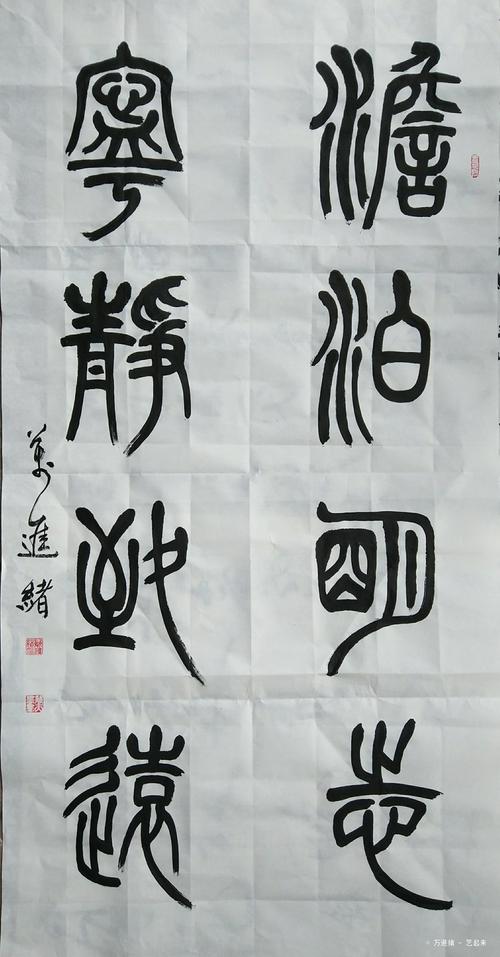 澹泊明志
寧靜致遠
萬進緒
© 万进绪 - 艺起来